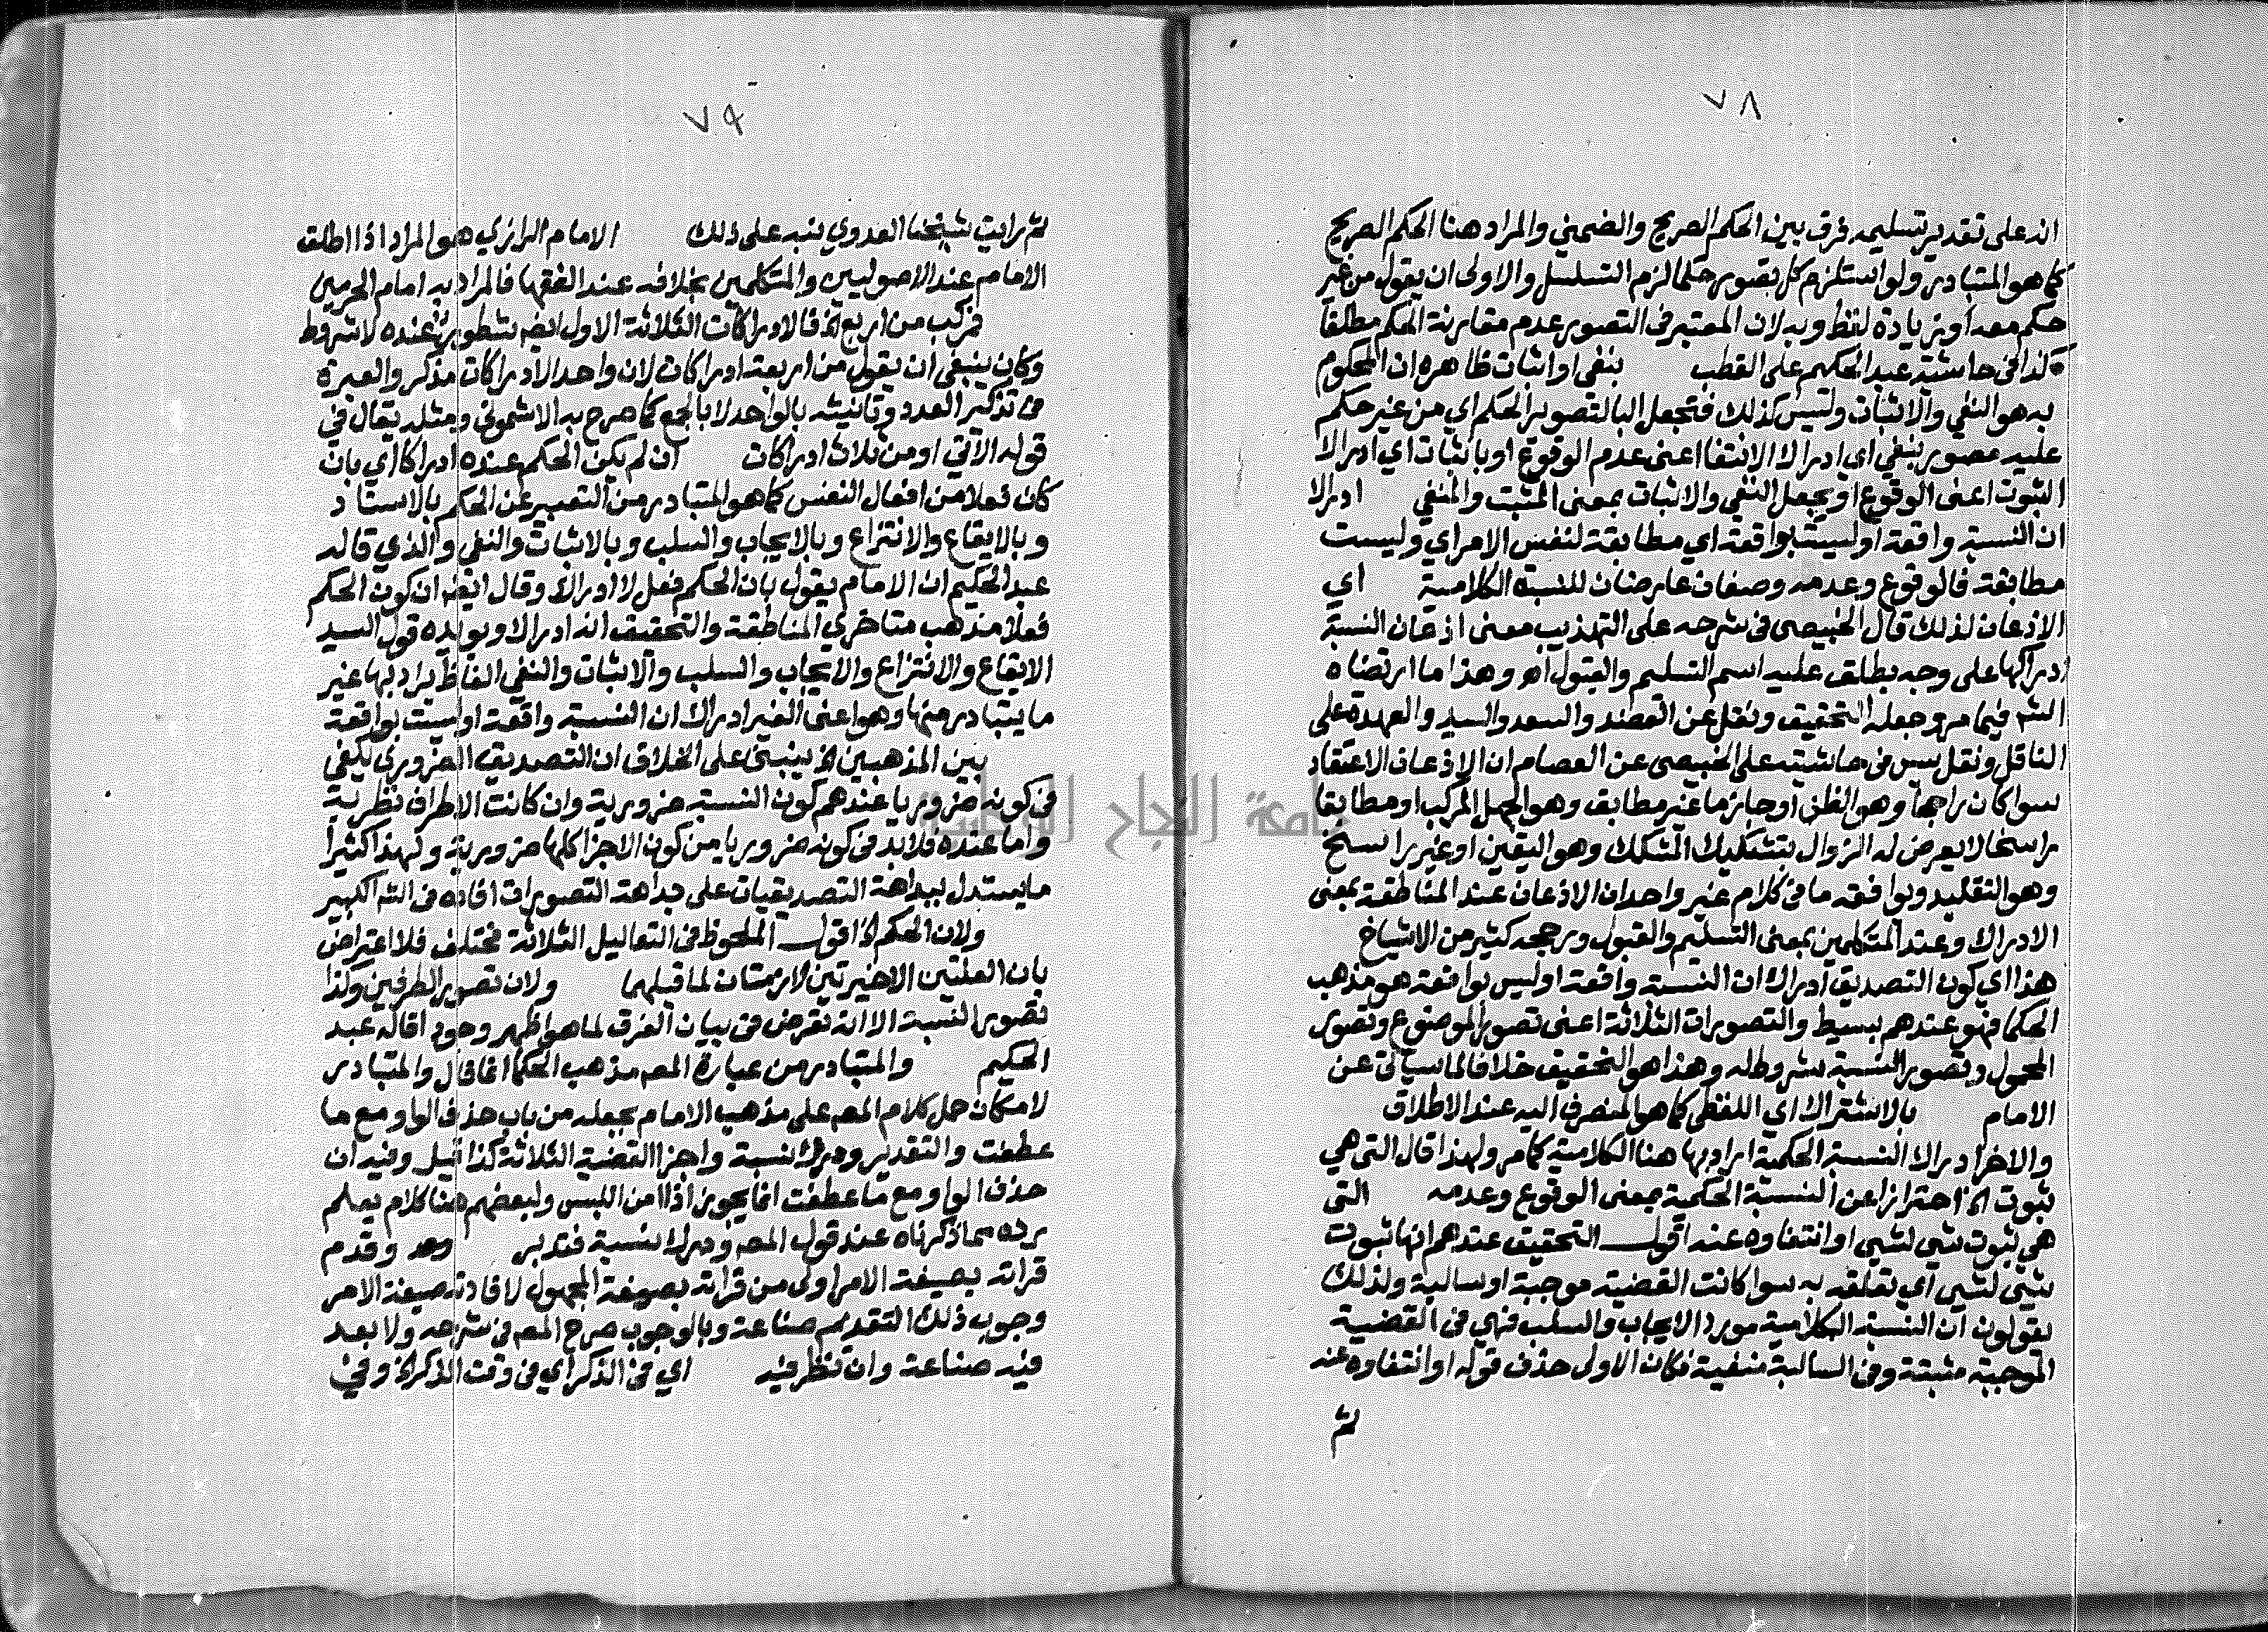 ٧٨
انه على تقدير تسليمه فرق بين الحكم الصريح والضمني والمراد هنا الحكم الصريح
كما هو المتبادر ولو استلزم كل تصور حكما لزم التسلسل والاولى ان يقول من غير
حكم معه او بزيادة لفظ وبه لان المعتبر في التصور عدم مقارنة الحكم مطلقا
كذا في حاشية عبد الحكيم على القطب بنفي او اثبات ظاهره ان المحكوم
به هو النفي والاثبات وليس كذلك فتجعل البا لتصوير الحكم اي من غير حكم
عليه مصور بنفي اي ادراك الانتفا اعنى عدم الوقوع او باثبات اي ادراك
الثبوت اعنى الوقوع او يجعل النفي والاثبات بمعنى المثبت والمنفي ادراك
ان النسبة واقعة او ليست بواقعة اي مطابقة لنفس الامر اي وليست
مطابقة فالوقوع وعدمه وصفان عارضان للنسبة الكلامية اي
الاذعان لذلك قال الخبيصي في شرحه على التهذيب معنى اذعان النسبة
ادراكها على وجه يطلق عليه اسم التسليم والقبول اه وهذا ما ارتضاه
الشم فيما مر وجعله التحقيق ونقل عن العضد والسعد والسيد والعهدة على
الناقل ونقل يس في حاشيته على الخبيصي عن العصام ان الاذعان الاعتقاد
سوا كان راجحا وهو الظن او جازما غير مطابق وهو الجهل المركب او مطابقا
راسخا لا يعرض له الزوال بتشكيك المشكك وهو اليقين او غير راسخ
وهو التقليد ويوافقه ما في كلام غير واحد ان الاذعان عند المناطقة بمعنى
الادراك وعند المتكلمين بمعنى التسليم والقبول ورجحه كثير من الاشياخ
هذا اي كون التصديق ادراك ان النسبة واقعة او ليس بواقعة هو مذهب
الحكما فهو عندهم بسيط والتصورات الثلاثة اعنى تصور الموضوع وتصور
المحمول وتصور النسبة شروط له وهذا هو التحقيق خلافا لما سياتى عن
الامام بالاشتراك اي اللفظى كما هو المنصرف اليه عند الاطلاق
والاخر ادراك النسبة الحكمية اراد بها هنا الكلامية كما مر ولهذا قال التى هي
ثبوت الخ احترازا عن النسبة الحكمية بمعنى الوقوع وعدمه التى
هي ثبوت شي لشي او انتفاوه عنه اقول التحقيق عندهم انها ثبوت
شي لشي اي تعلقه به سوا كانت القضية موجبة او سالبة ولذلك
يقولون ان النسبة الكلامية مورد الايجاب والسلب فهي في القضية
الموجبة مثبتة وفي السالبة منفية فكان الاولى حذف قوله او انتفاوه عنه
ثم
٧٩
ثم رايت شيخنا العدوي نبه على ذلك الامام الرازي هو المراد اذا اطلق
الامام عند الاصوليين والمتكلمين بخلافه عند الفقها فالمراد به امام الحرمين
مركب من اربع الخ فالادراكات الثلاثة الاول ايضم شطور عنده لا شروط
وكان ينبغي ان يقول من اربعة ادراكات لان واحد الادراكات مذكر والعبرة
في تذكير العدد وتانيثه بالواحد لا بالجمع كما صرح به الاشموني ومثله يقال في
قوله الآتي او من ثلاث ادراكات ان لم يكن الحكم عنده ادراكا اي بان
كان فعلا من افعال النفس كما هو المتبادر من التعبير عن الحكم بالاسناد
وبالايقاع والانتزاع وبالايجاب والسلب وبالاثبات والنفي والذي قاله
عبد الحكيم ان الامام يقول بان الحكم فعل لا ادراك وقال ايضم ان كون الحكم
فعلا مذهب متاخري المناطقة والتحقيق انه ادراك ويويده قول السيد
الايقاع والانتزاع والايجاب والسلب والاثبات والنفي الفاظ يراد بها غير
ما يتبادر منها وهو اعنى الغير ادراك ان النسبة واقعة او ليست بواقعة
بين المذهبين الخ ينبني على الخلاف ان التصديق الضروري يكفي
في كونه ضروريا عندهم كون النسبة ضرورية وان كانت الاطراف نظرية
واما عنده فلا بد في كونه ضروريا من كون الاجزا كلها ضرورية ولهذا كثيرا
ما يستدل ببداهة التصديقات على بداهة التصورات افاده في الشم الكبير
ولان الحكم الخ اقول الملحوظ في التعاليل الثلاثة مختلف فلا اعتراض
بان العلتين الاخيرتين لازمتان لما قبلهما ولان تصور الطرفين وكذا
تصور النسبة الا انه تعرض في بيان الفرق لما هو اظهر وجودا قاله عبد
الحكيم والمتبادر من عبارة المصم مذهب الحكما انما قال والمتبادر
لامكان حمل كلام المصم على مذهب الامام بجعله من باب حذف الواو مع ما
عطفت والتقدير ودرك نسبة واجزا القضية الثلاثة كذا قيل وفيه ان
حذف الواو مع ما عطفت انما يجوز اذا امن اللبس ولبعضهم هنا كلام يعلم
رده مما ذكرناه عند قول المصم ودرك نسبة فتدبر وقدم
قراته بصيغة الامر اولى من قراته بصيغة المجهول لافادة صيغة الامر
وجوب ذلك التقديم صناعة وبالوجوب صرح المصم في شرحه ولا بعد
فيه صناعة وان نظر فيه اي في الذكر اي في وقت الذكر الخ وفي